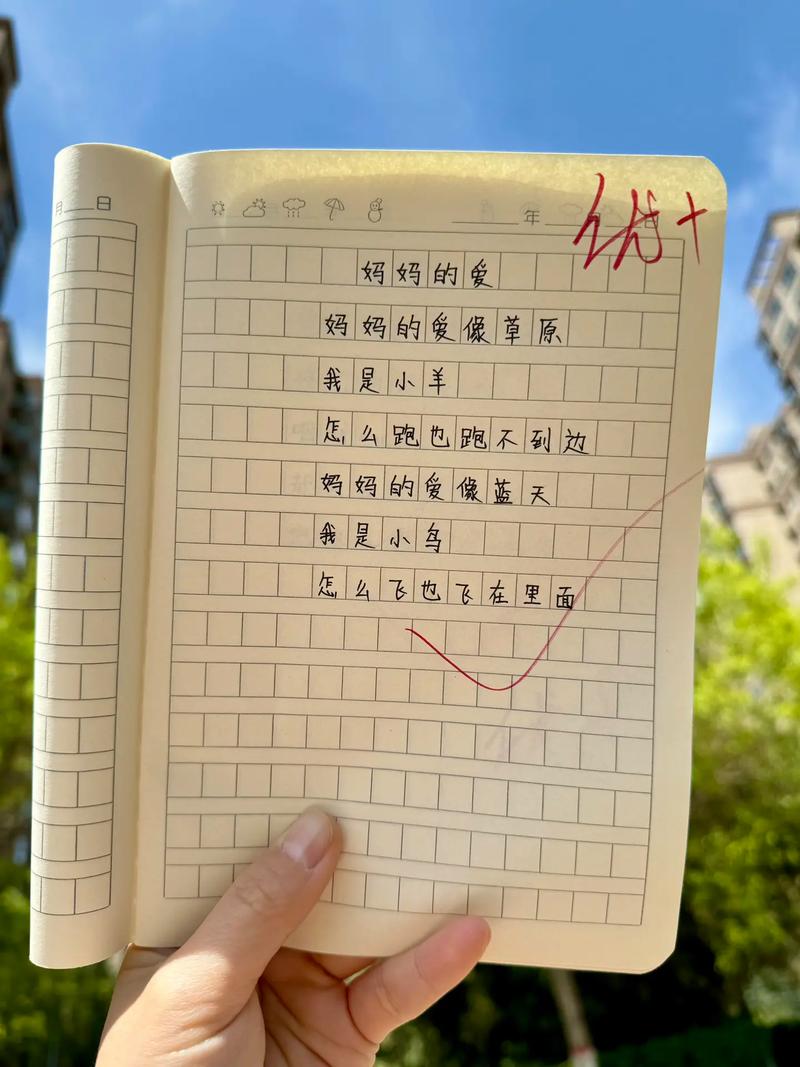 月 日
年 日
优+
妈妈的爱
妈妈的爱像草原
我是小羊
怎么跑也跑不到边
妈妈的爱像蓝天
我是小鸟
怎么飞也飞在里面